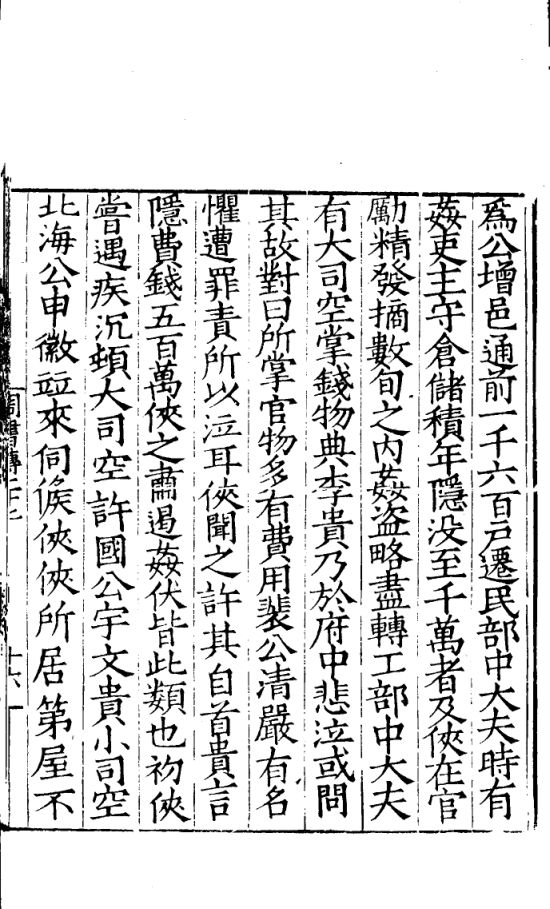 爲公增邑通前一千六百户遷民部中大夫時有
姦吏主守倉儲積年隱没至千萬者及俠在官
勵精發摘數旬之内姦盗略盡轉工部中大夫
有大司空掌錢物典李貴乃於府中悲泣或問
其故對曰所掌官物多有費用裴公清嚴有名
懼遭罪責所以泣耳俠聞之許其自首貴言
隱費錢五百萬俠之肅遏姦伏皆此類也初俠
嘗遇疾沉頓大司空許國公宇文貴小司空
北海公申徽並來伺候俠俠所居第屋不
周書傳二十七
十六